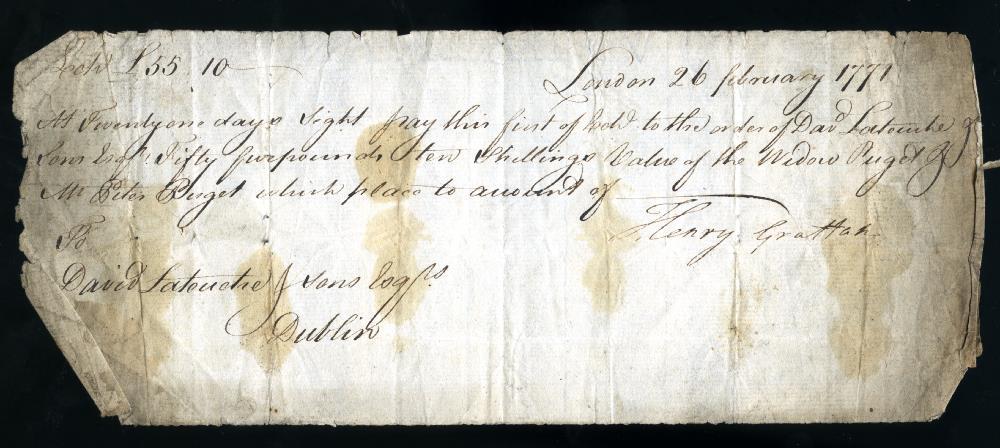 Exch£ £55 10
London 26 february 1771
At Twenty one days Sight pay this first of Exch£ to the order of Davd Latouche &
Sons Esqrs Fifty five pounds ten Shillings Value of the Widow Puget &
Mr Peter Puget which place to account of
Henry Grattan
To
David Latouche & Sons Esqrs
Dublin